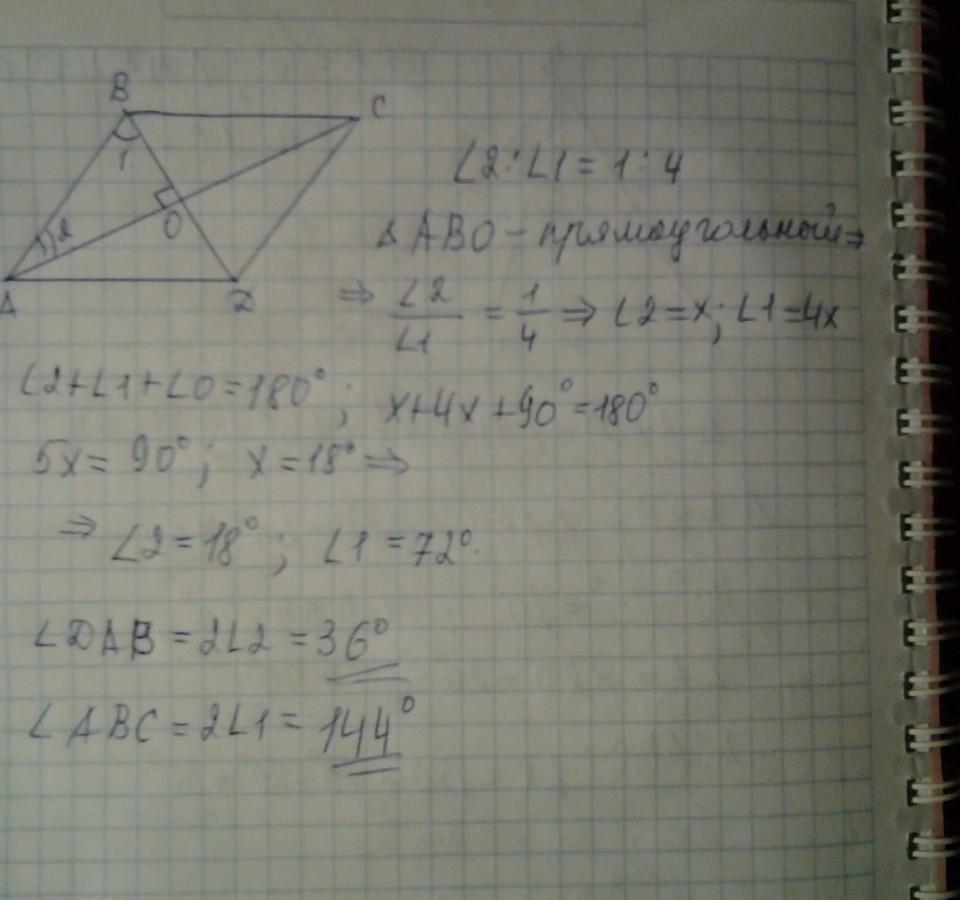 B
C
1
2
O
A
D
∠2:∠1=1:4
Δ ABO - прямоугольный⇒
⇒ ∠2/∠1 = 1/4 ⇒ ∠2=x; ∠1=4x
∠2+∠1+∠O=180°; x+4x+90°=180°
5x= 90°; x=18°⇒
⇒ ∠2=18°; ∠1=72°.
∠DAB=2∠2=36°
∠ABC=2∠1=144°